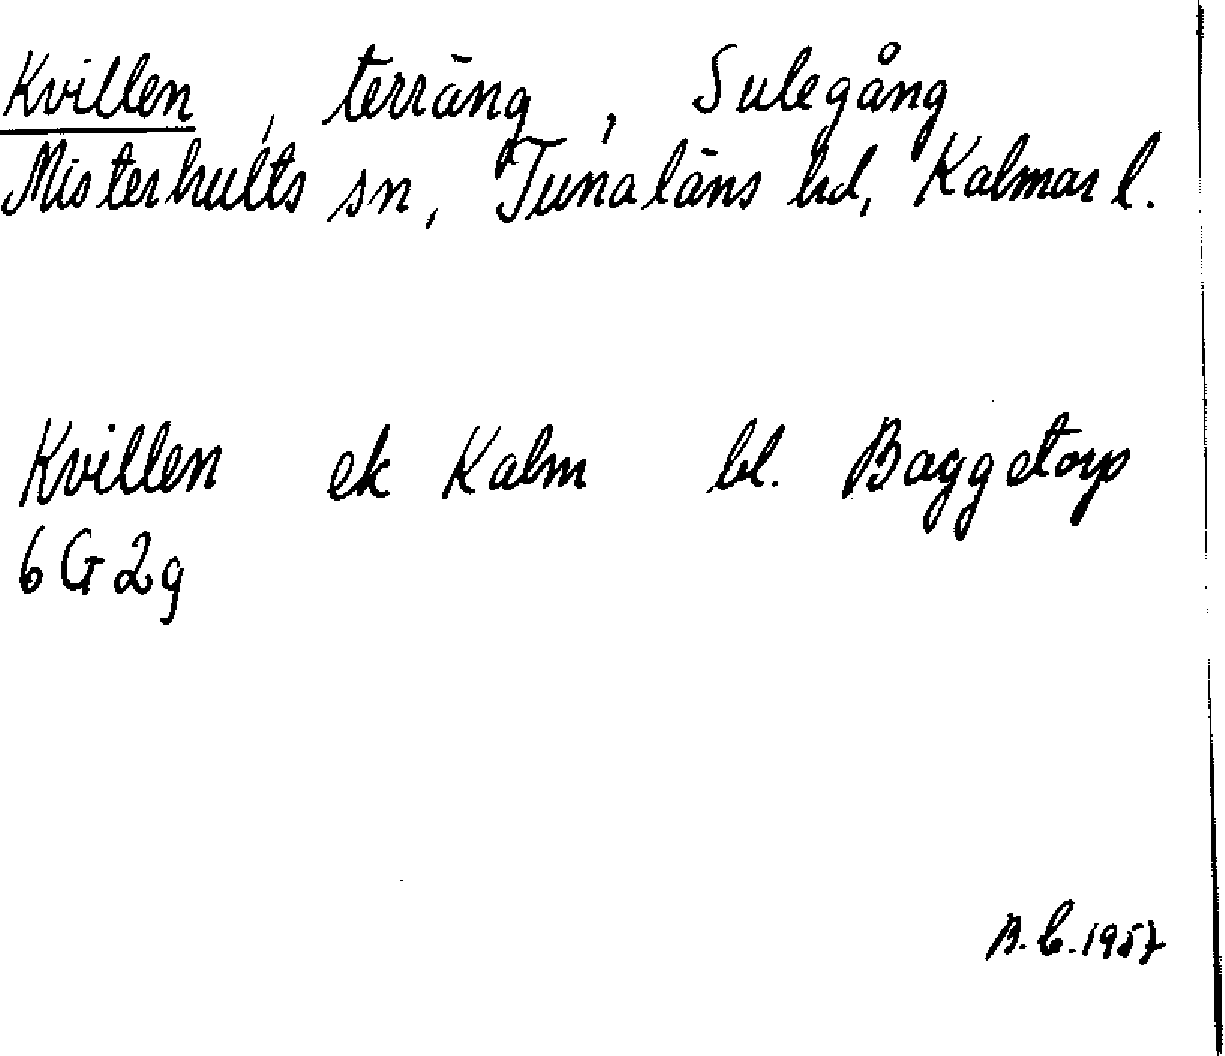 Kvillen, terräng, Sulegång
Misterhults sn, Tunaläns hd, Kalmar l.
Kvillen ek Kalm bl. Baggetorp
6G2g
B.C.1957